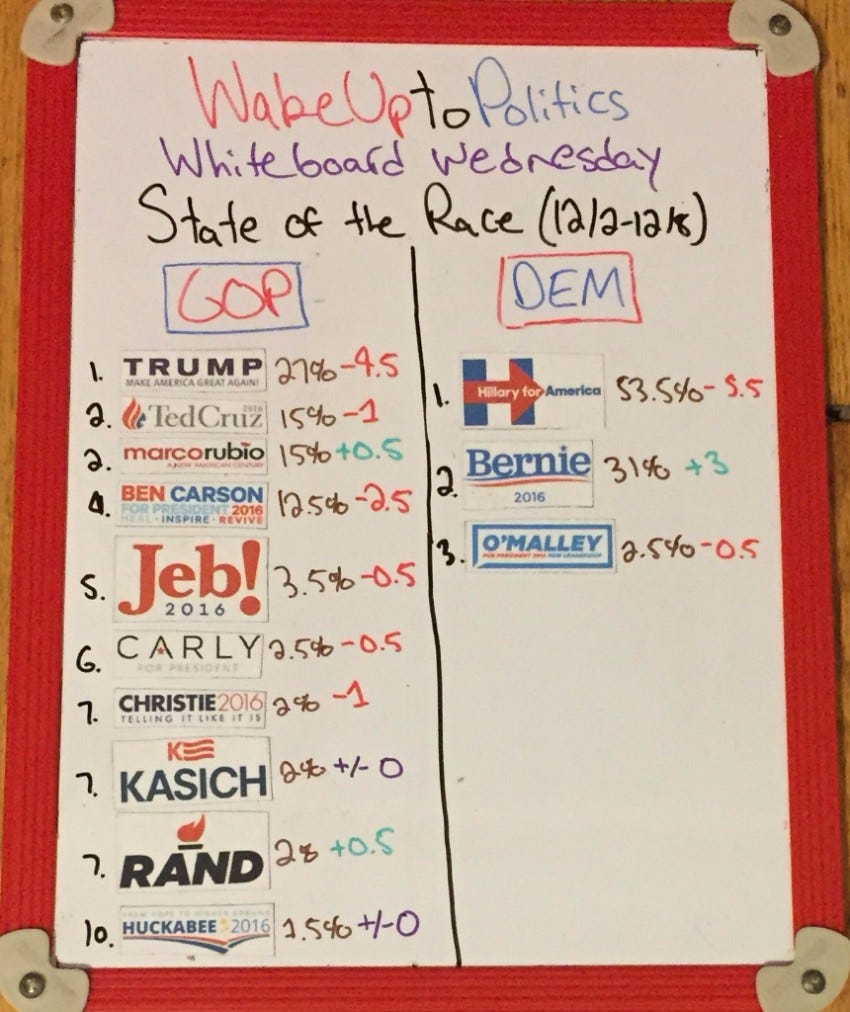 WakeUp to Politics
Whiteboard Wednesday
State of the Race (12/2-12/8)
GOP
1. TRUMP 27% -4.5
MAKE AMERICA GREAT AGAIN!
2. TedCruz 2016 15% -1
2. marcorubio 15% +0.5
A NEW AMERICAN CENTURY
4. BEN CARSON 12.5% -2.5
FOR PRESIDENT 2016
HEAL • INSPIRE • REVIVE
5. Jeb! 3.5% -0.5
2016
6. CARLY 2.5% -0.5
FOR PRESIDENT
7. CHRISTIE 2016 2% -1
TELLING IT LIKE IT IS
7. K
KASICH 2% +/- 0
7. RAND 2% +0.5
10. HUCKABEE 2016 1.5% +/-0
DEM
1. H Hillary for America 53.5% -5.5
2. Bernie 31% +3
2016
3. O'MALLEY 2.5% -0.5